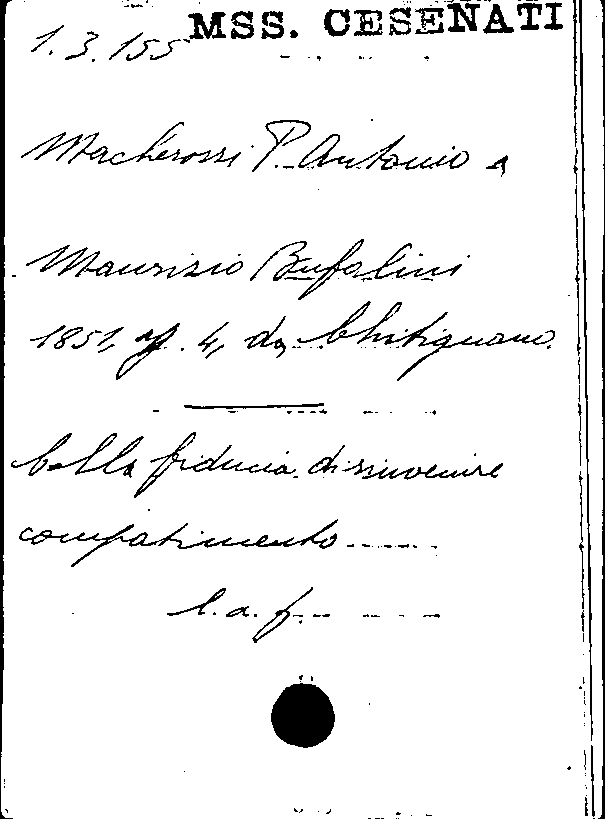 MSS. CESENATI
1.3.155
Macherossi P. Antonio a
Maurizio Bufalini
1851, ag. 4, da Chitignano.
Colla fiducia di rinvenire
compatimento
l. a. f.